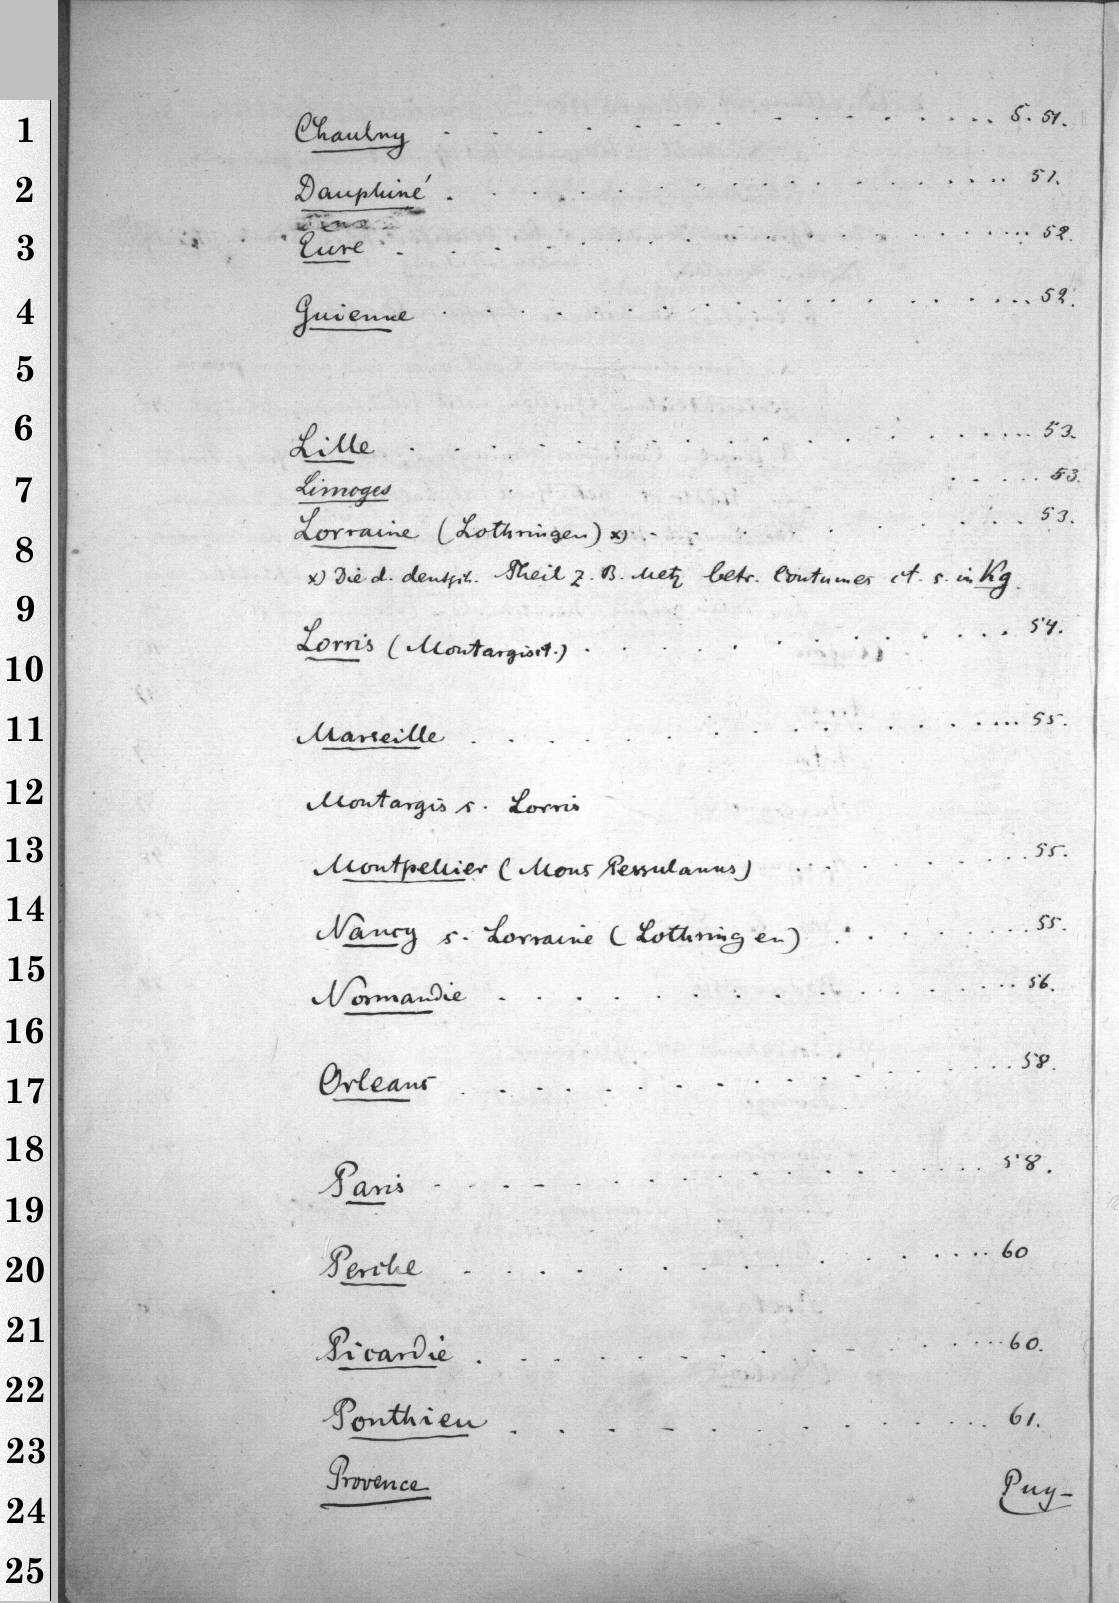 Chaulny . . . . . . . . . . . . . S. 51.
Dauphiné . . . . . . . . . . . . . 51.
Eure . . . . . . . . . . . . . 52.
Guienne . . . . . . . . . . . . . 52.
Lille . . . . . . . . . . . . . 53.
Limoges . . . . . 53.
Lorraine (Lothringen) x) . . . . . . . . . 53.
x) Die d. deutsch. Theil z. B. Metz betr. Coutumes et. s. in Kg.
Lorris (Montargis et.) . . . . . . . . . . 54.
Marseille . . . . . . . . . . . . . 55.
Montargis s. Lorris
Montpellier (Mons Pessulanus) . . . . . . . 55.
Nancy s. Lorraine (Lothringen) . . . . . . . 55.
Normandie . . . . . . . . . . . . . 56.
Orleans . . . . . . . . . . . . . 58.
Paris . . . . . . . . . . . . . 58.
Perche . . . . . . . . . . . . . 60
Picardie . . . . . . . . . . . . . 60.
Ponthieu . . . . . . . . . . . . . 61.
Provence Puy-
1
2
3
4
5
6
7
8
9
10
11
12
13
14
15
16
17
18
19
20
21
22
23
24
25